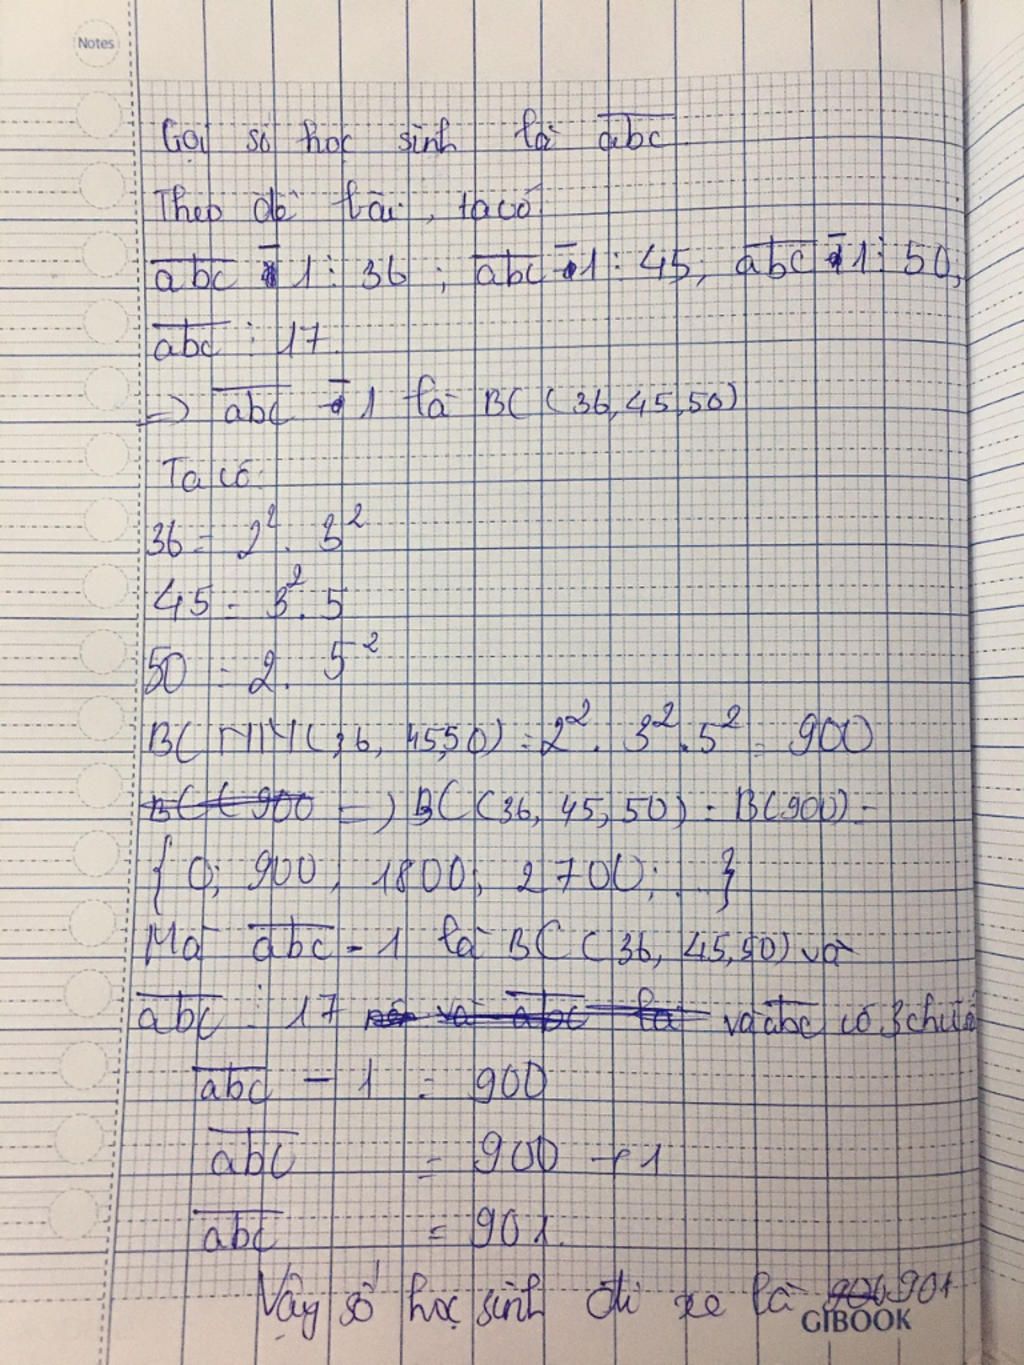 Notes
Gọi số học sinh là abc
Theo đề bài, ta có
abc - 1 ⋮ 36 ; abc - 1 ⋮ 45; abc - 1 ⋮ 50;
abc ⋮ 17.
=> abc - 1 là BC (36, 45, 50)
Ta có:
36 = 2². 3²
45 = 3². 5
50 = 2. 5²
BCNN(36, 45,50) = 2². 3².5² = 900
=) BC(36, 45, 50) = B(900) =
{ 0; 900; 1800; 2700; ...}
Mà abc - 1 là BC (36, 45, 50) và
abc ⋮ 17 và abc có 3 chữ số
abc - 1 = 900
abc = 900 + 1
abc = 901.
Vậy số học sinh đi xe là 901
GIBOOK